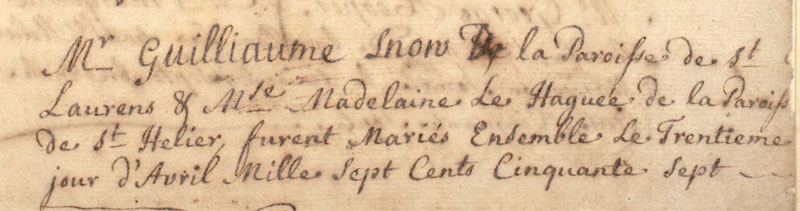 Mr Guilliaume Snow De la Paroisse de St
Laurens & Mse Madelaine Le Haguee de la Paroiss
de St Helier, furent Mariés Ensemble Le Trentieme
jour d'Avril Mille Sept Cents Cinquante Sept